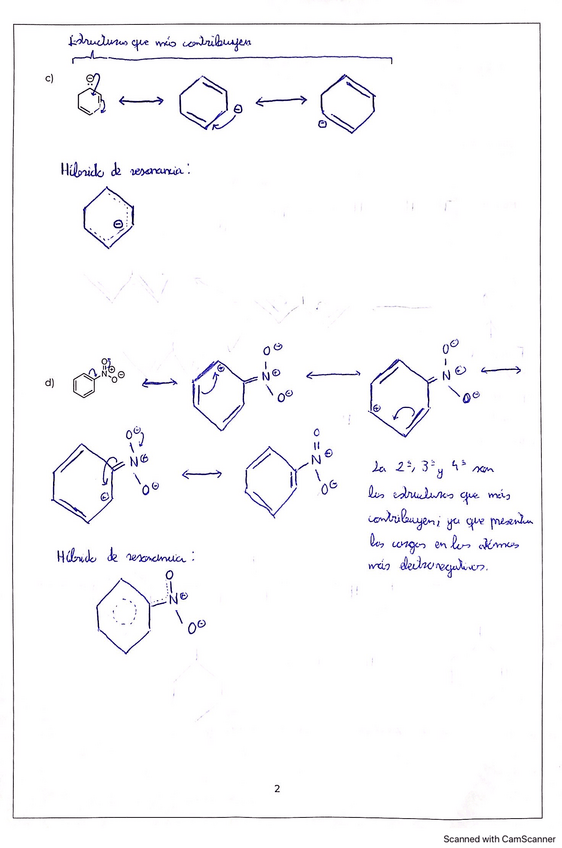 Estructuras que más contribuyen
c)
Híbrido de resonancia:
d)
O⊖
O⊖
O
N⊕
N⊕
O⊖
O⊖
O⊖
O⊖
O
N⊕
N⊕
O⊖
O⊖
La 2ª, 3ª y 4ª son
las estructuras que más
contribuyen; ya que presentan
las cargas en los átomos
más electronegativos.
Híbrido de resonancia:
O
N⊕
O⊖
2
Scanned with CamScanner